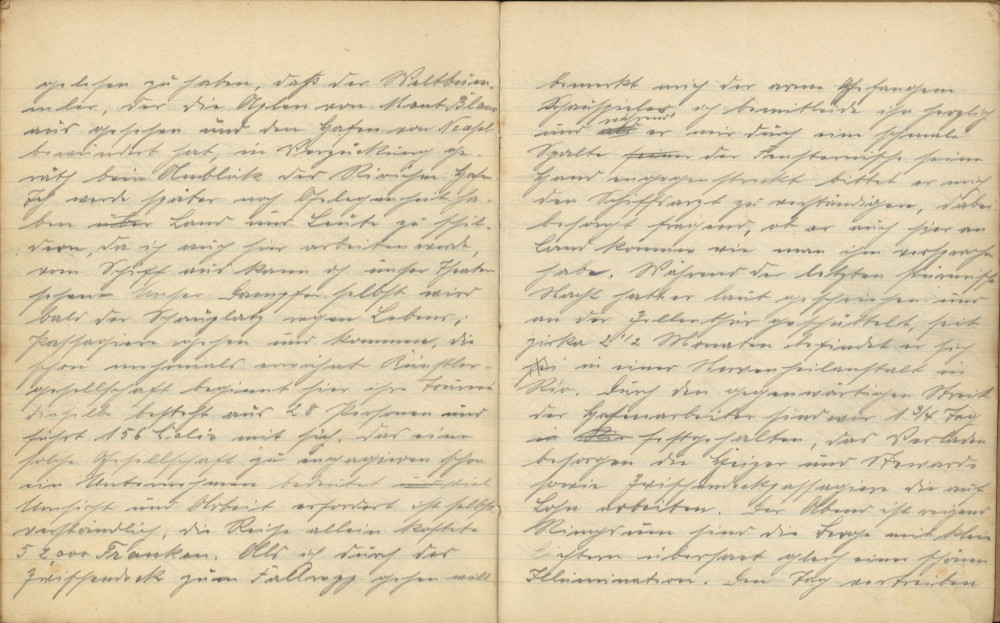 gelesen zu haben, daß der Weltbum-
mler, der die Alpen von Mont Blanc
aus gesehen und den Hafen von Neapel
bewundert hat, in Verzückung ge-
räth beim Anblick der Rioschen Hafen
Ich werde später noch Gelegenheit ha-
ben über Land und Leute zu schil-
dern, da ich auch hier arbeiten werde,
vom Schiff aus kann ich unser Theater
sehen. Unser Dampfer selbst wird
bald der Schauplatz regen Lebens;
Passagiere gehen und kommen, die
schon mehrmals erwähnte Künstler-
gesellschaft beginnt hier ihre Tournee
dieselbe besteht aus 28 Personen und
führt 156 Colis mit sich. Das eine
solche Gesellschaft zu engagieren schon
ein Unternehmen bedeutet und viel
Umsicht und Arbeit erfordert ist selbst-
verständlich, die Reise allein kostete
52000 Franken. Als ich durch das
Zwischendeck zum Fallrepp gehen will
bemerkt mich der arme Gefangene
Schauspieler ich bemitleide ihn herzlich
und während er mir durch eine schmale
Spalte der Fensternische seine
Hand entgegenstreckt bittet er mich
den Schiffsarzt zu verständigen, dabei
besorgt fragend, ob er auch hier an
Land komme wie man ihm versprochen
habe. Während der letzten stürmischen
Nacht hatt er laut geschrieen und
an der Zellenthür geschüttelt, seit
zirka 2 1/2 Monaten befindet er sich
in einer Nervenheilanstalt in
Rio. Durch den gegenwärtigen Streik
der Hafenarbeiter sind wir 1 3/4 Tag
festgehalten, das Verladen
besorgen die Heizer und Stewards
sowie Zwischendeckpassagiere die auf
Lohn arbeiten. Der Abend ist reizend
Ringsum sind die Berge mit klein
Lichtern übersaet gleich einer schönen
Illumination. Den Tag vertreiben